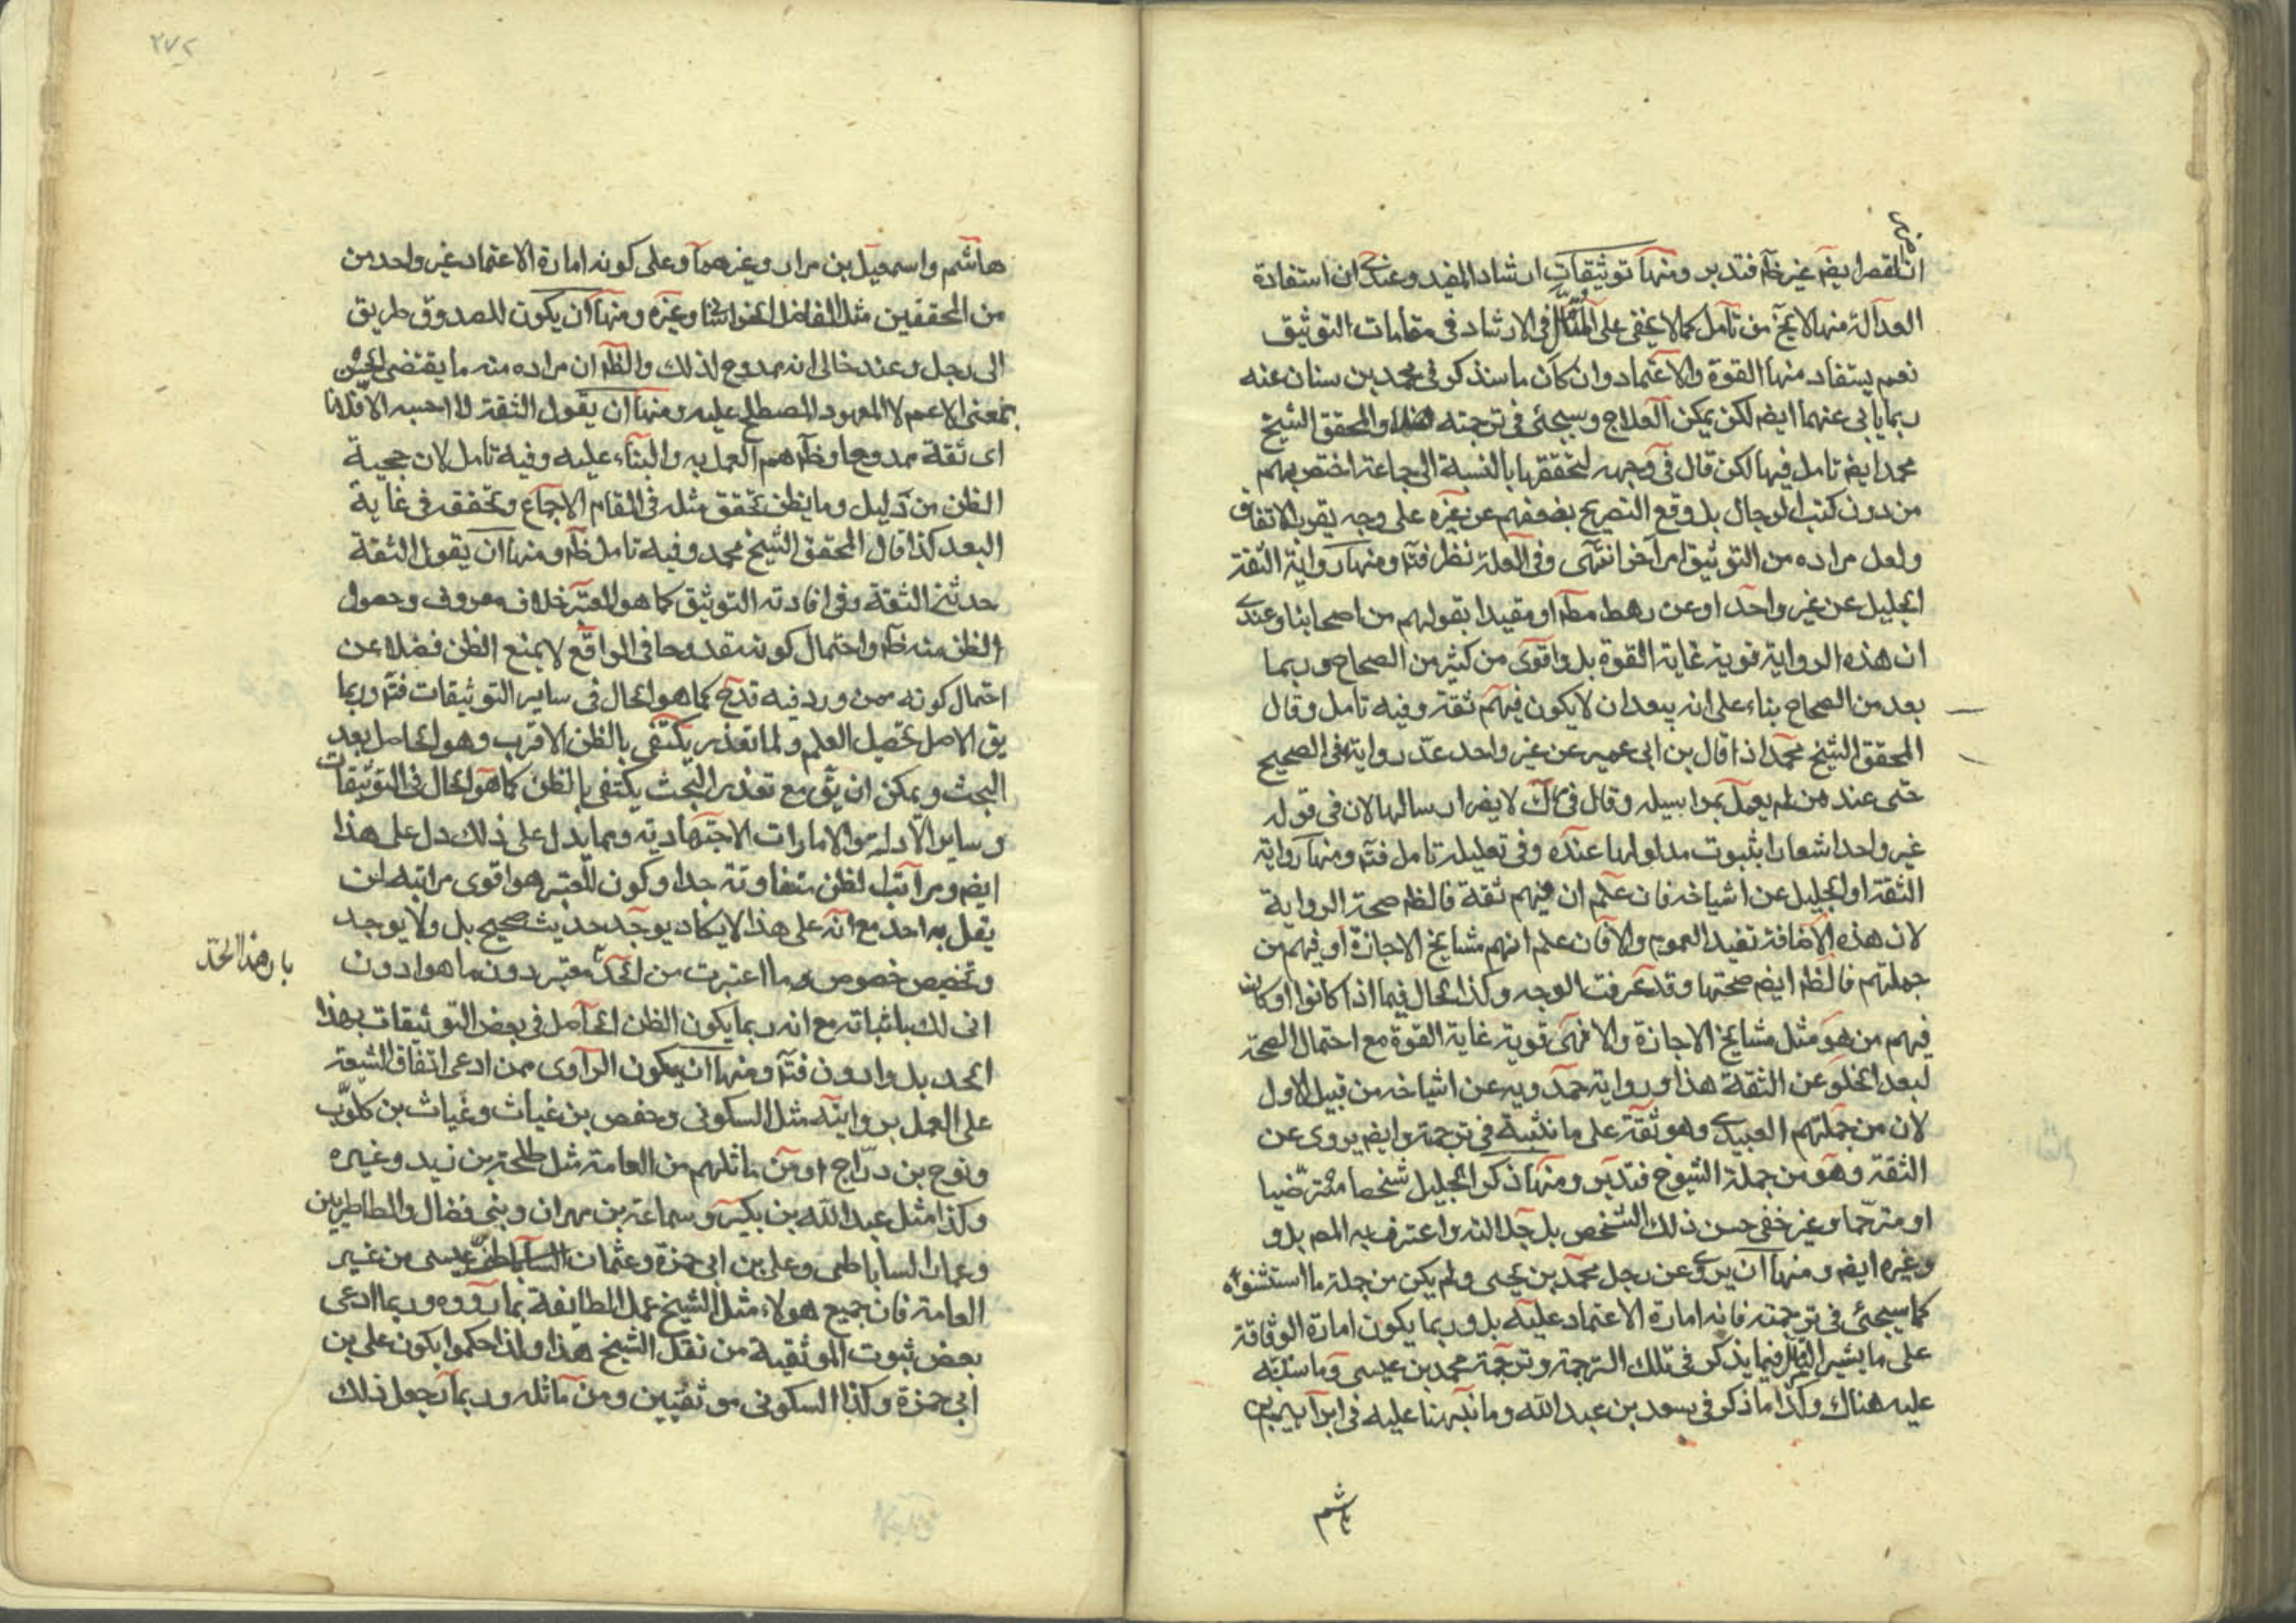 ان القصر ايضم غير ظم فتدبر ومنها توثيقات ارشاد المفيد وعندى ان استفادة
العدالة منها لا يخ من تامل كما لا يخفى على المتأمل فى الارشاد فى مقامات التوثيق
نعم يستفاد منها القوة والاعتماد وان كان ما سنذكر فى محمد بن سنان عنه
ربما يابى عنهما ايضم لكن يمكن العلاج وسيجئ فى ترجمته والمحقق الشيخ
محمد ايضم تامل فيها لكن قال فى وجهه لتحققها بالنسبة الى جماعة اختص بهم
من دون كتب الرجال بل وقع التصريح بضعفهم عن غيره على وجه يقرب الاتفاق
ولعل مراده من التوثيق امر اخر انتهى وفى العلة نظر فتم ومنها رواية الثقة
الجليل عن غير واحد او عن رهط مطم او مقيدا بقولهم من اصحابنا وعندى
ان هذه الرواية قوية غاية القوة بل واقوى من كثير من الصحاح وربما
يعد من الصحاح بناء على انه يبعد ان لا يكون فيهم ثقة وفيه تامل وقال
المحقق الشيخ محمد اذا قال بن ابى عمير عن غير واحد عدّ روايته فى الصحيح
حتى عند من لم يعمل بمراسيله وقال فى ك لا يضر ارسالها لان فى قوله
غير واحد اشعارا بثبوت مدلولها عنده وفى تعليله تامل فتم ومنها رواية
الثقة او الجليل عن اشياخه فان علم ان فيهم ثقة فالظم صحة الرواية
لان هذه الاضافة تفيد العموم والا فان علم انهم مشايخ الاجازة او فيهم من
جملتهم فالظم ايضم صحتها وقد عرفت الوجه وكذا الحال فيما اذا كانوا او كان
فيهم من هو مثل مشايخ الاجازة والا فهى قوية غاية القوة مع احتمال الصحة
لبعد الخلو عن الثقة هذا ورواية حمدويه عن اشياخه من قبيل الاول
لان من جملتهم العبيدى وهو ثقة على ما نثبته فى ترجمته وايضم يروى عن
الثقة وهو من جملة الشيوخ فتدبر ومنها ذكر الجليل شخصا مترضيا
او مترحّما وغير خفى حسن ذلك الشخص بل جلالته واعترف به المص بل و
وغيره ايضم ومنها ان يروى عن رجل محمد بن يحيى ولم يكن من جملة ما استثنوه
كما سيجئ فى ترجمته فانه امارة الاعتماد عليه بل وربما يكون امارة الوثاقة
على ما يشير اليه فيما يذكر فى تلك الترجمة وترجمة محمد بن عيسى وما سننبّه
عليه هناك وكذا ما ذكر فى سعد بن عبد الله وما نبّهنا عليه فى ابراهيم بن
هاشم
٢٧٢
هاشم واسمعيل بن مرار وغيرهما وعلى كونه امارة الاعتماد غير واحد من
من المحققين مثل الفاضل الخراسانى وغيره ومنها ان يكون للصدوق طريق
الى رجل وعند خالى انه ممدوح لذلك والظم ان مراده منه ما يقتضى الحسن
بمعنى الاعم لا المعهود المصطلح عليه ومنها ان يقول الثقة لا احسبه الا فلانا
اى ثقة ممدوحا وظم هم العمل به والبناء عليه وفيه تامل لان حجية
الظن من دليل وما يظن تحقق مثله فى المقام الاجماع وتحققه فى غاية
البعد كذا قال المحقق الشيخ محمد وفيه تامل ظم ومنها ان يقول الثقة
حدثنى الثقة وفى افادته التوثيق كما هو المعتبر خلاف معروف وحصول
الظن منه ظم واحتمال كونه مقدوحا فى الواقع لا يمنع الظن فضلا عن
احتمال كونه ممن ورد فيه قدح كما هو الحال فى ساير التوثيقات فتم وربما
يق الاصل تحصيل العلم ولما تعذر يكتفى بالظن الاقرب وهو الحاصل بعد
البحث ويمكن ان يق مع تعذر البحث يكتفى بالظن كما هو الحال فى التوثيقات
وساير الادلة والامارات الاجتهادية وما يدل على ذلك دل على هذا
ايضم ومراتب الظن متفاوتة جدا وكون المعتبر هو اقوى مراتبه لم
يقل به احد مع انه على هذا لا يكاد يوجد حديث صحيح بل ولا يوجد
وتخصيص خصوص ما اعتبرت من الحد معتبر دون ما هو ادون
انى لك باثباته مع انه ربما يكون الظن الحاصل فى بعض التوثيقات بهذا
الحد بل وادون فتم ومنها ان يكون الراوى ممن ادعى اتفاق الشيعة
على العمل بروايته مثل السكونى وحفص بن غياث وغياث بن كلوب
ونوح بن درّاج او من ماثلهم من العامة مثل طلحة بن زيد وغيره
وكذا مثل عبد الله بن بكير وسماعة بن مهران وبنى فضال والطاطريين
وعمار الساباطى وعلى بن ابى حمزة وعثمان بن عيسى من غير
العامة فان جميع هولاء مثل الشيخ عمل الطايفة بما رووه وربما ادعى
بعض ثبوت الموثقية من نقل الشيخ هذا ولذا حكموا بكون على بن
ابى حمزة وكذا السكونى موثقيين ومن ماثله وربما جعل ذلك
بان هذا الحد